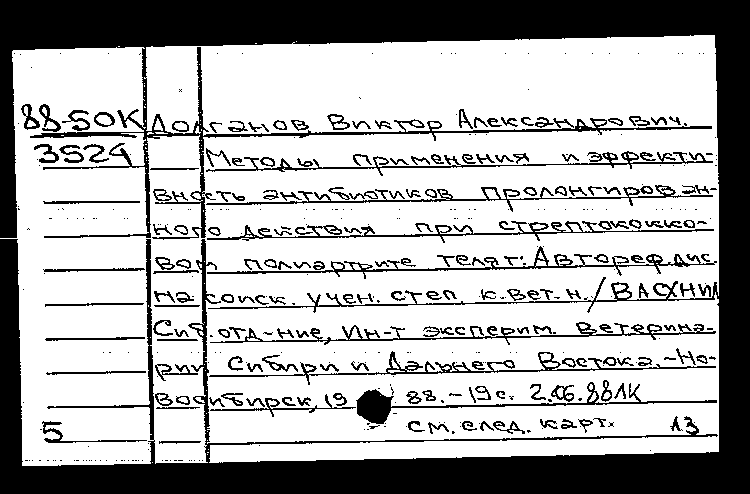 88-50К Долганов Виктор Александрович.
3524 Методы применения и эффекти-
вность антибиотиков пролонгирован-
ного действия при стрептококко-
вом полиартрите телят: Автореф. дис.
на соиск. учен. степ. к. вет. н. / ВАСХНИЛ
Сиб. отд-ние, Ин-т эксперим. ветерина-
рии Сибири и Дальнего Востока. - Но-
восибирск, 19 88. - 19 с. 2.06.88ЛК
5 см. след. карт. 13